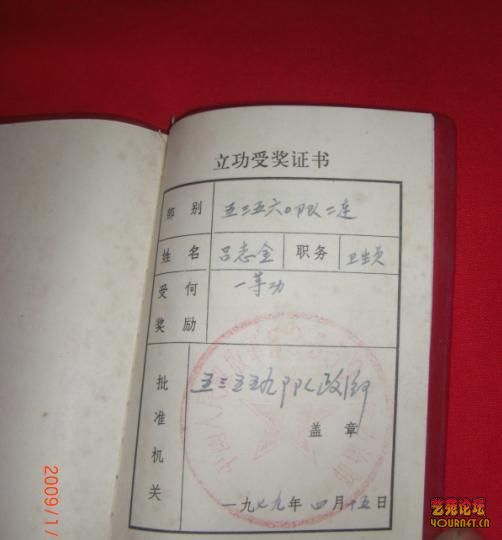 立功受奖证书
部别 五三五六〇部队二连
姓名 吕志金 职务 卫生员
受何奖励 一等功
批准机关 五三五五九部队政治部
盖章
一九七九年四月十五日
2009/1/
艺苑论坛
YOURART.CN